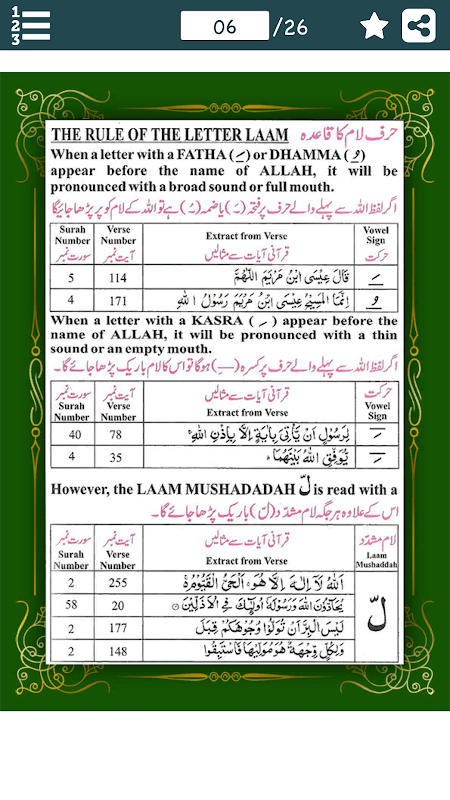 1
2
3
06 /26
THE RULE OF THE LETTER LAAM حرف لام کا قاعدہ
When a letter with a FATHA ( ـَ ) or DHAMMA ( ـُ )
appear before the name of ALLAH, it will be
pronounced with a broad sound or full mouth.
اگر لفظ اللہ سے پہلے والے حرف پر فتحہ ( ـَ ) یا ضمہ ( ـُ ) ہے تو اللہ کے لام کو پر پڑھا جائیگا
Surah Number Verse Number Extract from Verse Vowel Sign
سورت نمبر آیت نمبر قرآنی آیات سے مثالیں حرکت
5 114 قَالَ عِيْسَى ابْنُ مَرْيَمَ اللّٰهُمَّ ـَ
4 171 اِنَّمَا الْمَسِيْحُ عِيْسَى ابْنُ مَرْيَمَ رَسُوْلُ اللّٰهِ ـُ
When a letter with a KASRA ( ـِ ) appear before the
name of ALLAH, it will be pronounced with a thin
sound or an empty mouth.
اگر لفظ اللہ سے پہلے والے حرف پر کسرہ ( ـِ ) ہوگا تو اس کا لام باریک پڑھا جائے گا۔
سورت نمبر آیت نمبر قرآنی آیات سے مثالیں حرکت
Surah Number Verse Number Extract from Verse Vowel Sign
40 78 لِرَسُوْلٍ اَنْ يَّاْتِيَ بِاٰيَةٍ اِلَّا بِاِذْنِ اللّٰهِ ـِ
4 35 يُّوَفِّقِ اللّٰهُ بَيْنَهُمَا ـِ
However, the LAAM MUSHADADAH لّ is read with a
اس کے علاوہ ہر جگہ لام مشدّد (لّ) باریک پڑھا جائے گا۔
سورت نمبر آیت نمبر قرآنی آیات سے مثالیں لام مشدّد
Surah Number Verse Number Extract from Verse Laam Mushaddah
2 255 اَللّٰهُ لَآ اِلٰهَ اِلَّا هُوَ اَلْحَيُّ الْقَيُّوْمُ لّ
58 20 يُحَآدُّوْنَ اللّٰهَ وَرَسُوْلَهٗٓ اُولٰٓئِكَ فِي الْاَذَلِّيْنَ
2 177 لَيْسَ الْبِرَّ اَنْ تُوَلُّوْا وُجُوْهَكُمْ قِبَلَ
2 148 وَلِكُلٍّ وِّجْهَةٌ هُوَ مُوَلِّيْهَا فَاسْتَبِقُوا